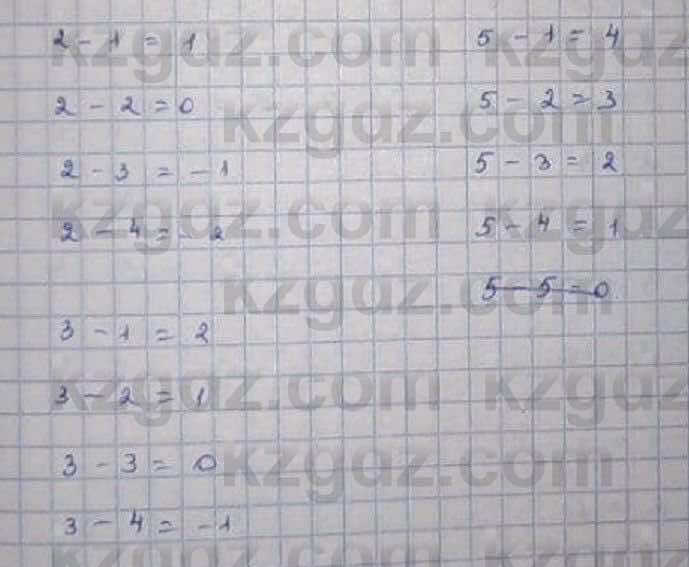 2 - 1 = 1
2 - 2 = 0
2 - 3 = - 1
2 - 4 = - 2
3 - 1 = 2
3 - 2 = 1
3 - 3 = 0
3 - 4 = - 1
5 - 1 = 4
5 - 2 = 3
5 - 3 = 2
5 - 4 = 1
5 - 5 = 0
kzgdz.com kzgdz.com
kzgdz.com
kzgdz.com kzgdz.com
kzgdz.com
kzgdz.com kzgdz.com
kzgdz.com
kzgdz.com kzgdz.com